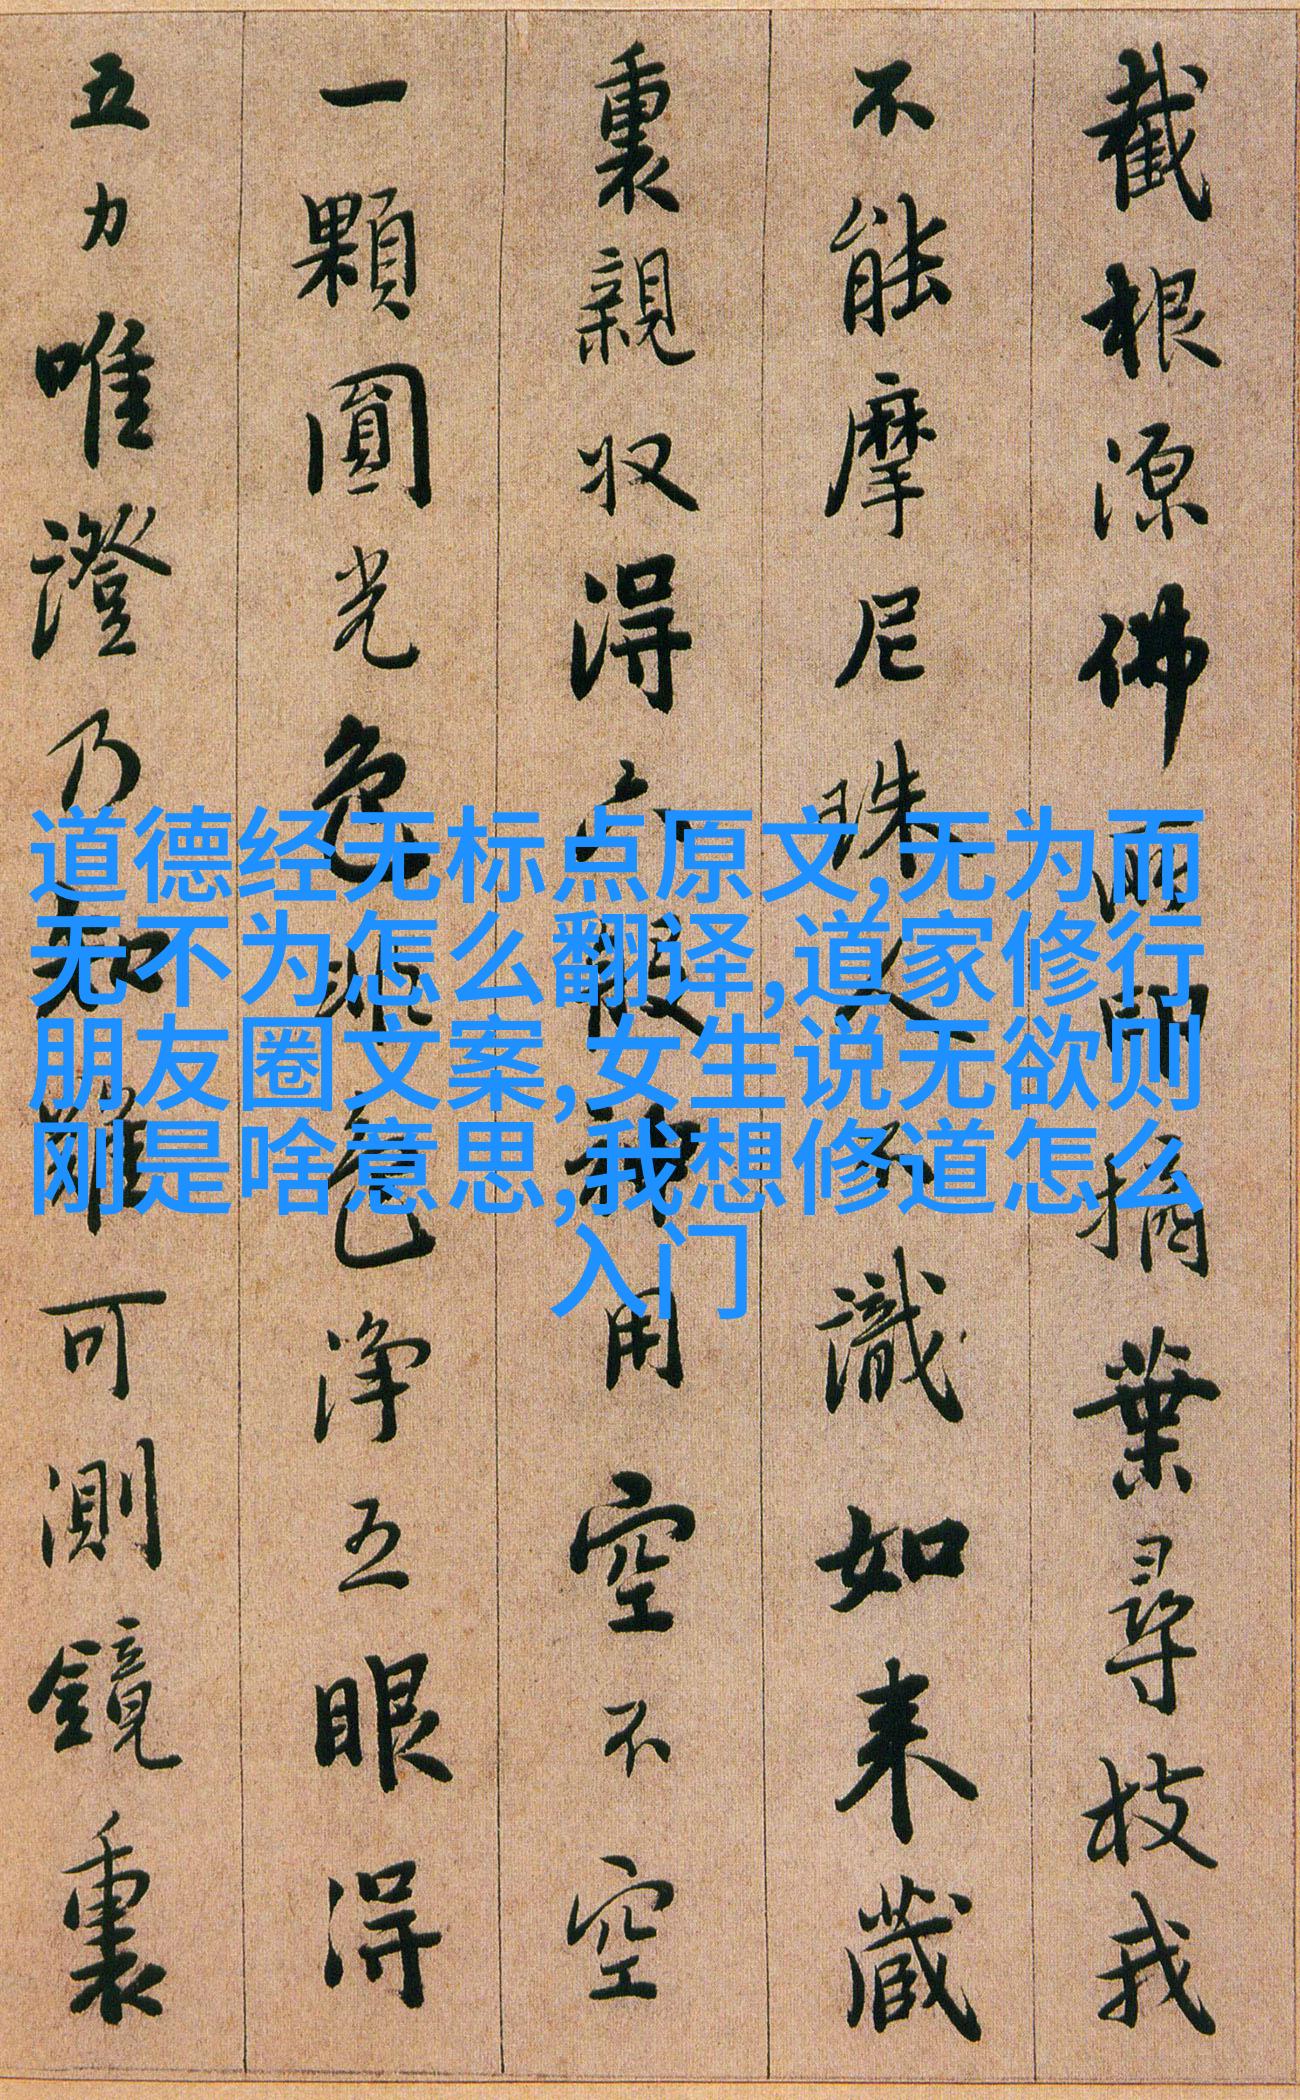 截根源佛所印摘葉尋枝我
不能摩尼珠人不識如来藏
裏親収得六般神用空不空
一顆圓光色非色淨五眼得
五力唯證乃知難可測鏡裏
道德经无标点原文,无为而
无不为怎么翻译,道家修行
朋友圈文案,女生说无欲则
刚是啥意思,我想修道怎么
入门